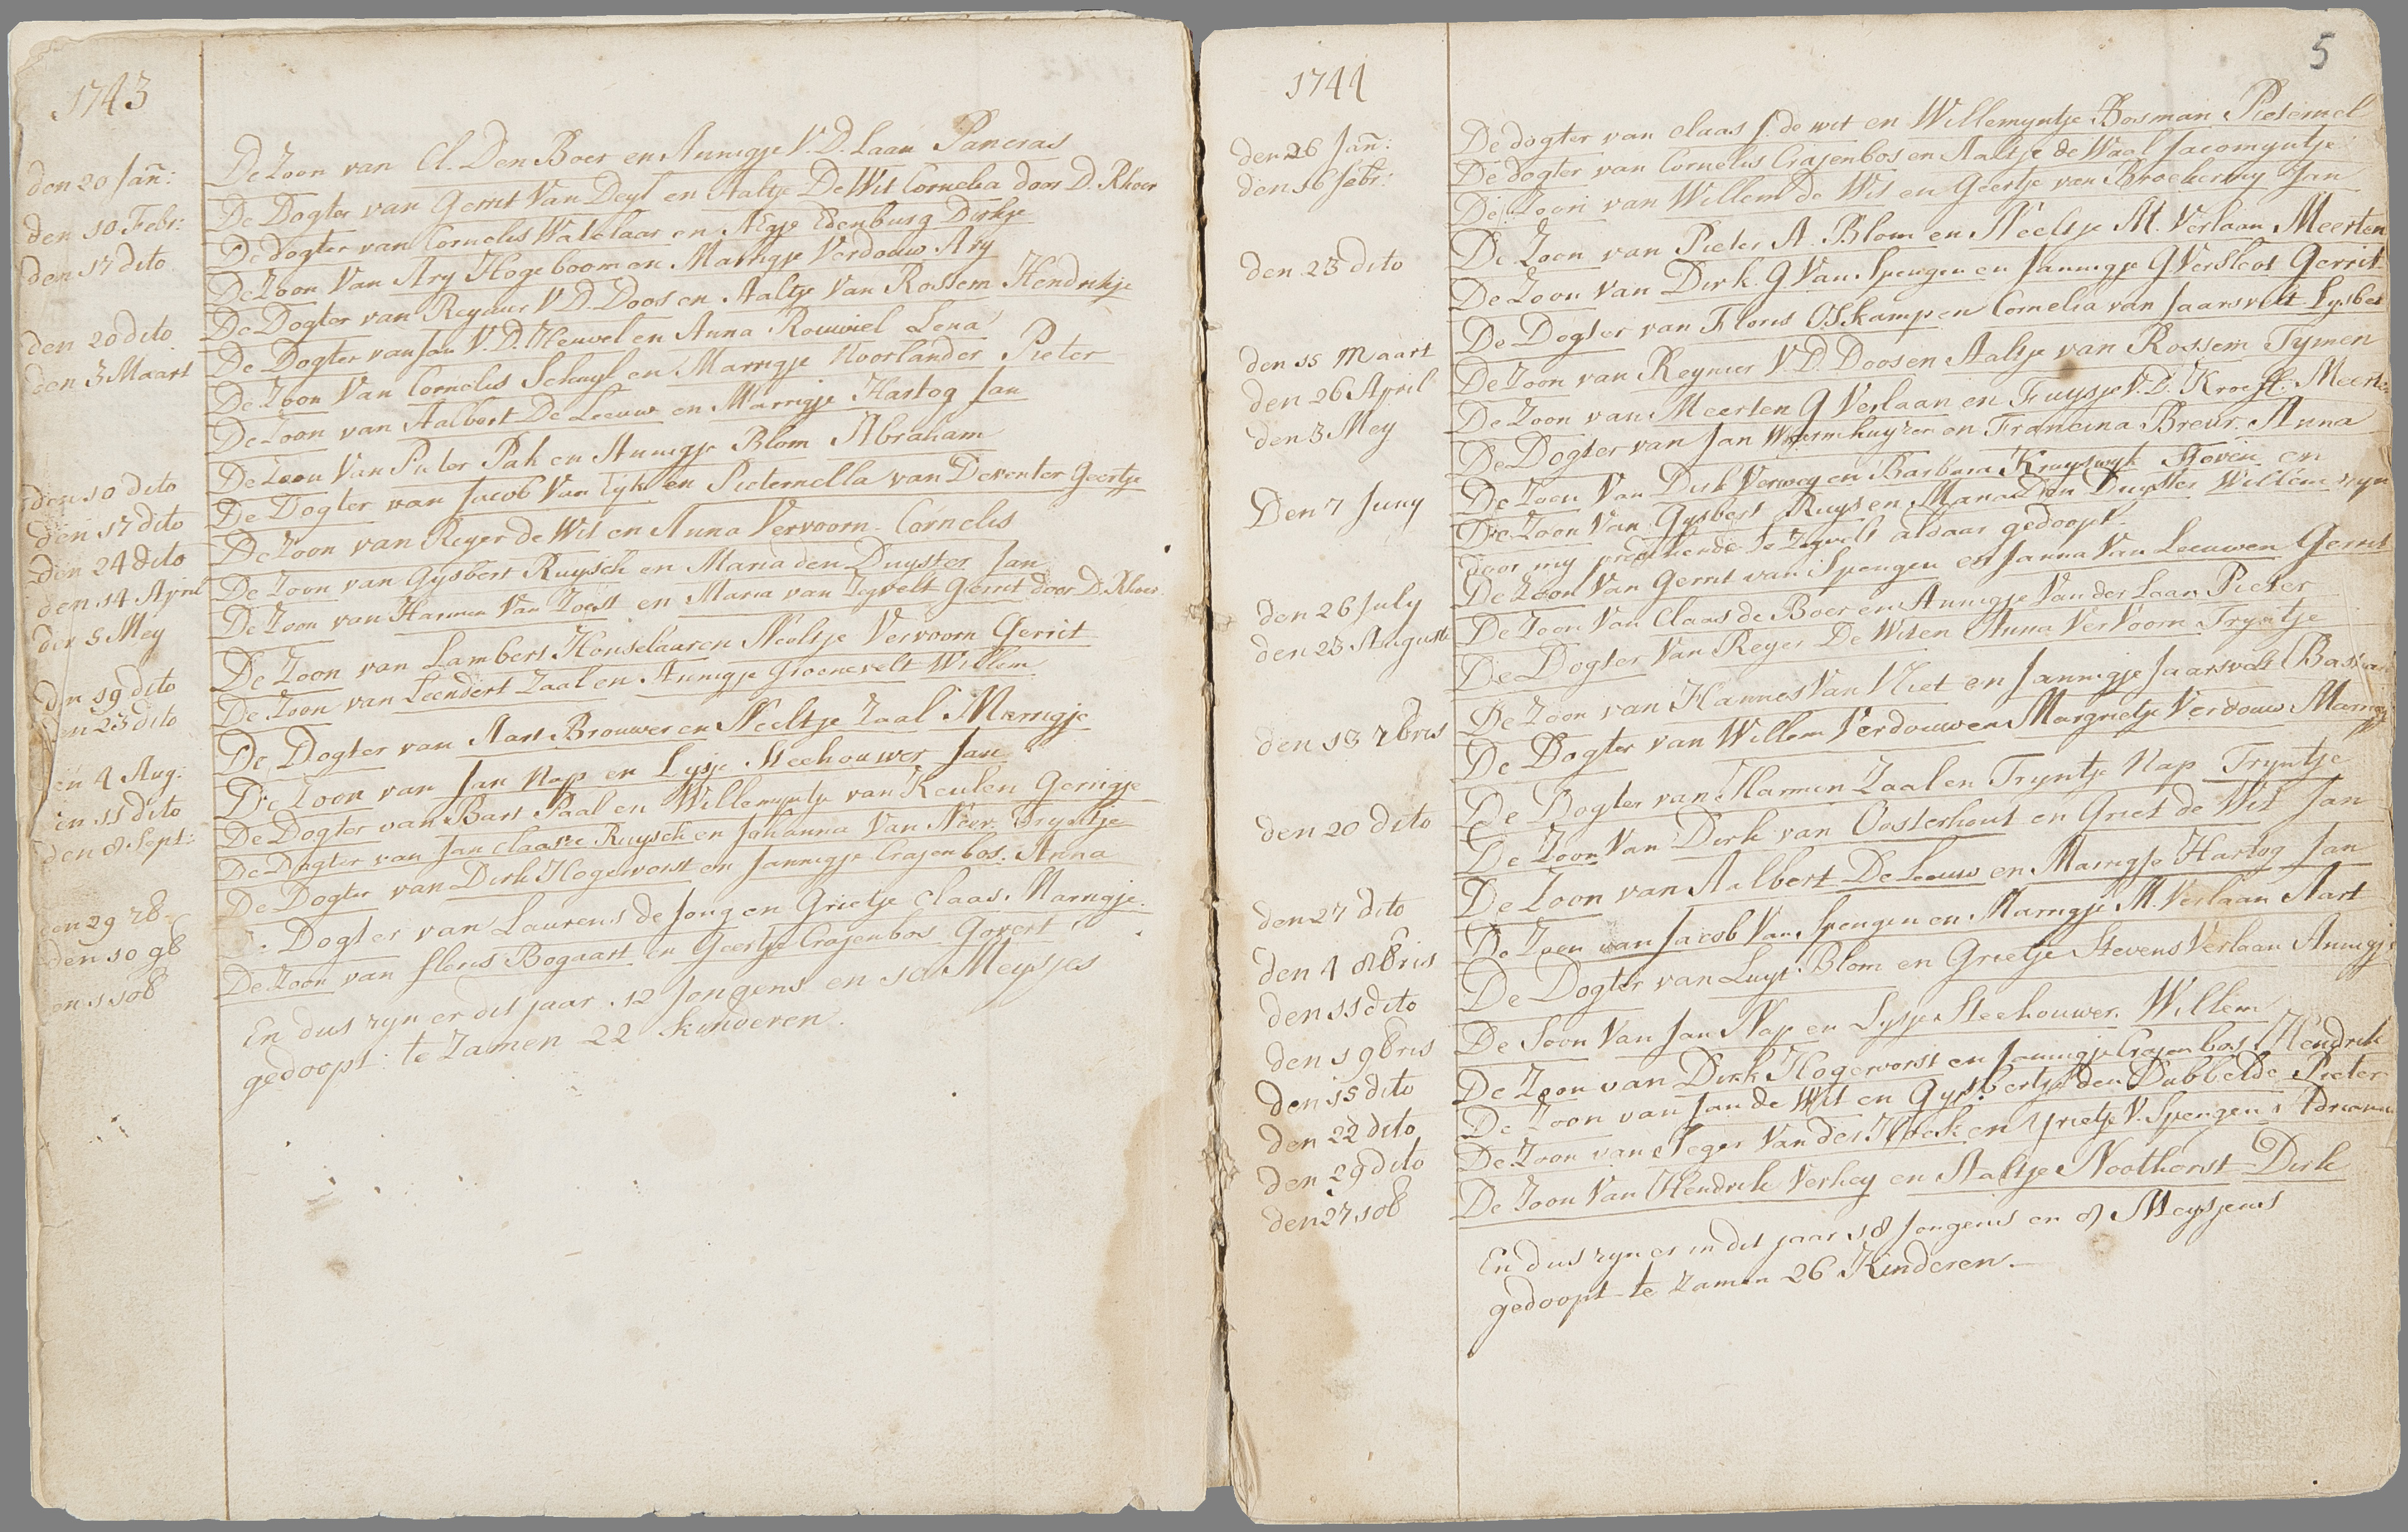 1743
den 20 Jañ: De Zoon van Cl. Den Boer en Annigje V.D. Laan Pancras
den 10 Febr: De Dogter van Gerrit Van Deyl en Aaltje De Wit Cornelia door D. Rhoer
den 17 dito De dogter van Cornelis Watelaar en Aegje Edenburg Dirkje
De Zoon Van Ary Hogeboom en Marrigje Verdouw Ary
den 20 dito De Dogter van Reynier V.D. Doos en Aaltje Van Rossem Hendrikje
den 3 Maart De Dogter van Jan V.D. Heuvel en Anna Rouwiel Lena
De Zoon Van Cornelis Schuyl en Marrigje Noorlander Pieter
De Zoon van Aalbert De Leeuw en Marrigje Hartog Jan
den 10 dito De Zoon Van Pieter Pak en Annigje Blom Abraham
den 17 dito De Dogter van Jacob Van Eyk en Pieternella van Deventer Geertje
den 24 dito De Zoon van Reyer de Wit en Anna Vervoorn Cornelis
den 14 April De Zoon van Gysbert Ruysch en Maria den Duyster Jan
den 5 Mey De Zoon van Harmen Van Zoest en Maria van Zeyvelt Gerrit door D. Rhoer
den 19 dito De Zoon van Lambert Honselaar en Neeltje Vervoorn Gerrit
den 23 dito De Zoon van Leendert Zaal en Annigje Groenevelt Willem
den 4 Aug: De Dogter van Aart Brouwer en Neeltje Zaal Marrigje
en 11 dito De Zoon van Jan Nap en Lysje Steehouwer Jan
den 8 Sept: De Dogter van Bart Paal en Willemyntje van Keulen Gerrigje
De Dogter van Jan Claasse Ruysch en Johanna Van Neer Tryntje
den 29 7B De Dogter van Dirk Hogevorst en Jannigje Crajenbos Anna
den 10 9B Dogter van Laurens de Jong en Grietje Claas Marrigje
en 1 10B De Zoon van floris Bogaart en Geertje Crajenbos Govert
En dus zyn er dit jaar 12 Jongens en 10 Meysjes
gedoopt: te Zamen 22 kinderen.
5
1744
den 26 Jañ: De dogter van claas J. de wit en Willemyntje Bosman Pieternel
den 16 febr: De dogter van Cornelis Crajenbos en Aaltje de Waal Jacomyntje
De Zoon van Willem de Wit en Geertje van Broekering Jan
den 23 dito De Zoon van Pieter A. Blom en Neeltje M. Verlaan Meerten
De Zoon Van Dirk G Van Spengen en Jannigje G Versloot Gerrit
den 15 Maart De Dogter van Floris Oskamp en Cornelia van Jaarsvelt Lysbet
den 26 April De Zoon van Reynier V.D. Doos en Aaltje van Rossem Tymen
den 3 Mey De Zoon van Meerten G Verlaan en Fuysje V.D. Kroeft. Meerten
De Dogter van Jan Wermhuyzen en Francina Breur Anna
Den 7 Juny De Zoon Van Dirk Verweg en Barbara Kruyswyk Steven en
De Zoon Van Gysbert Ruys en Maria Den Duyster Willem zyn
door my predikende te Zegvelt aldaar gedoopt.
den 26 July De Zoon Van Gerrit van Spengen en Janna Van Leeuwen Gerrit
den 23 August De Zoon Van Claas de Boer en Annigje Van der Laan Pieter
De Dogter Van Reyer De Wit en Anna Vervoorn Tryntje
den 13 7bris De Zoon van Hannes Van Vliet en Jannigje Jaarsvelt
De Dogter van Willem Verdouw en Margrietje Verdouw Marrigje
den 20 dito De Dogter van Harmen Zaal en Tryntje Nap Tryntje
De Zoon Van Dirk van Oosterhout en Griet de Wit Jan
den 27 dito De Zoon van Aalbert De Leeuw en Marrigje Hartog Jan
den 4 8Bris De Zoon van Jacob Van Spengen en Marrigje M. Verlaan Aart
den 11 dito De Dogter van Luyt Blom en Grietje Stevens Verlaan Annigje
den 1 9Bris De Soon Van Jan Nap en Lysje Steehouwer. Willem
den 15 dito De Zoon van Dirk Hogevorst en Jannigje Crajenbos Hendrik
den 22 dito De Zoon van Jan de Wit en Gysbertje den Dubbelde Pieter
den 29 dito De Zoon van Seger Van der Hoek en Grietje V. Spengen
den 27 10B De Zoon Van Hendrik Verhey en Aaltje Noothorst Dirk
En dus zyn er in dit jaar 18 Jongens en 8 Meysjens
gedoopt te zamen 26 Kinderen.